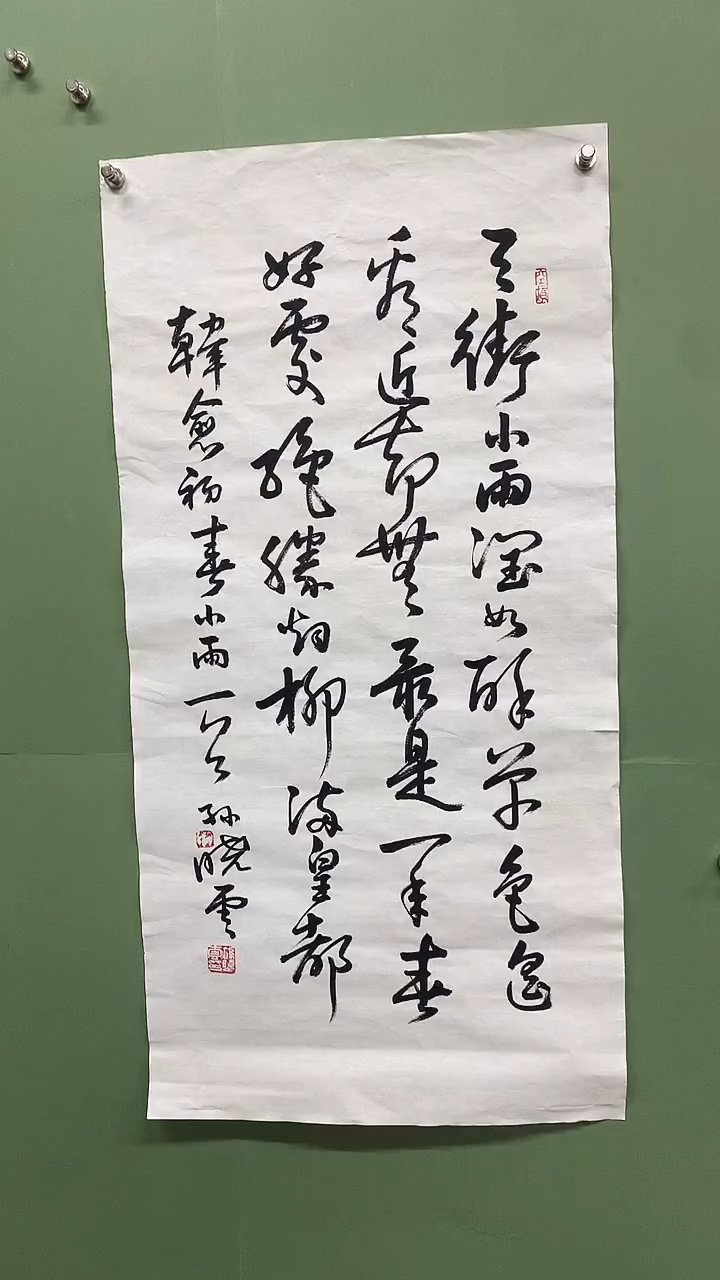 天街小雨潤如酥草色遙
看近却無最是一年春
好處絕勝煙柳滿皇都
韓愈初春小雨一首孫曉雲